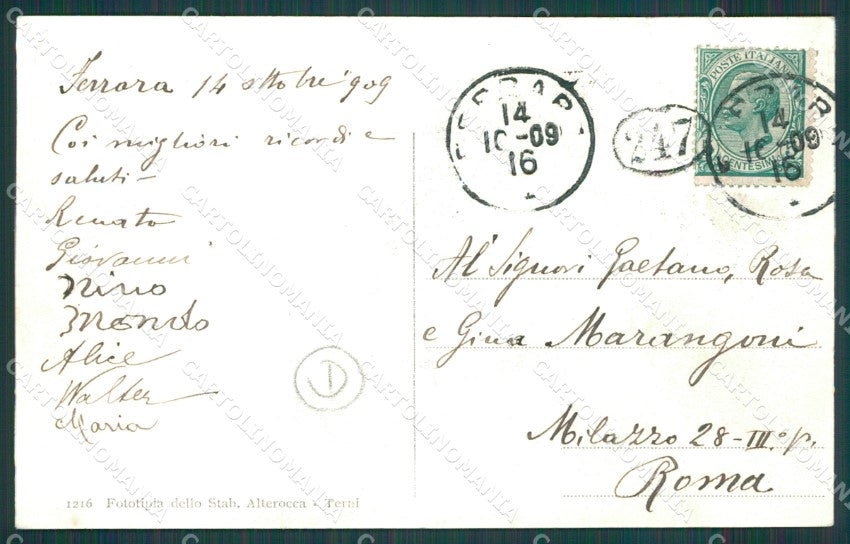 Ferrara 14 ottobre 909
Coi migliori ricordi e
saluti -
Renato
Giovanni
Nino
Mondo
Alice
Walter
Maria
1216 Fototipia dello Stab. Alterocca - Terni
FERRARA
14
10-09
16
247
POSTE ITALIANE
CENTESIMI
14
10-09
16
Ai Signori Gaetano, Rosa
e Gina Marangoni
Milazzo 28-III° p.
Roma
CARTOLINOMANIA